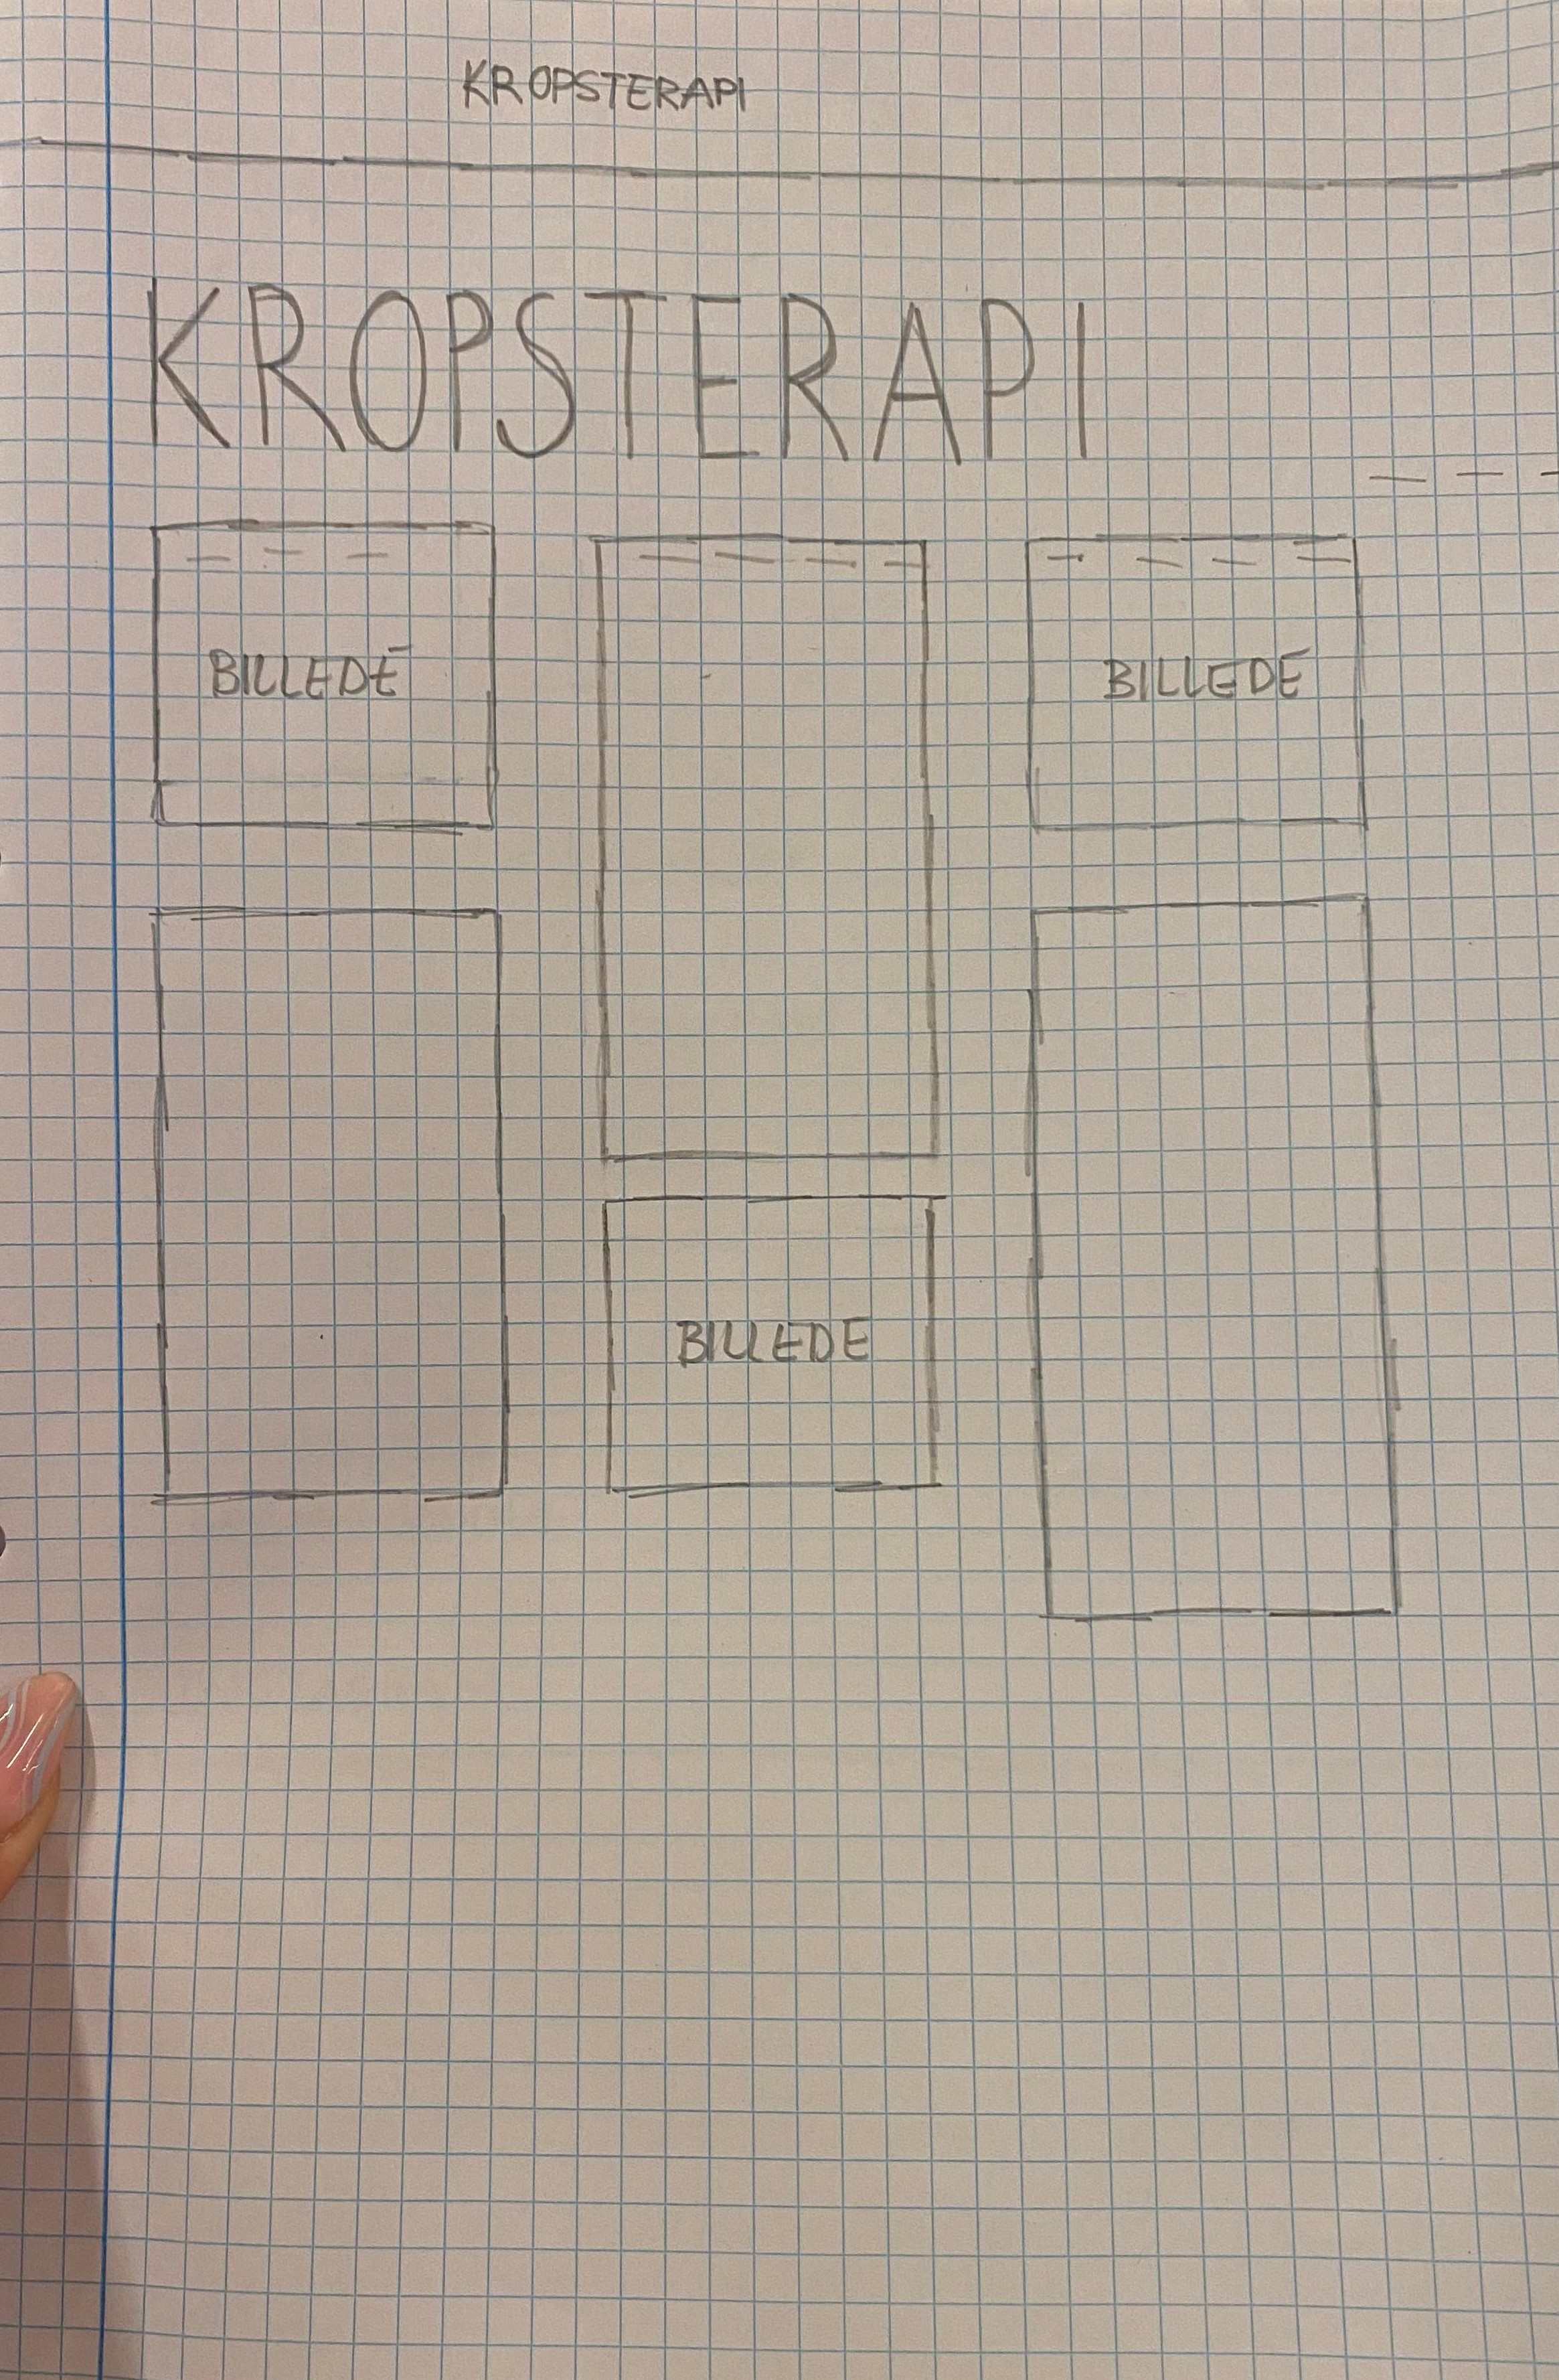 KROPSTERAPI
KROPSTERAPI
BILLEDE
BILLEDE
BILLEDE